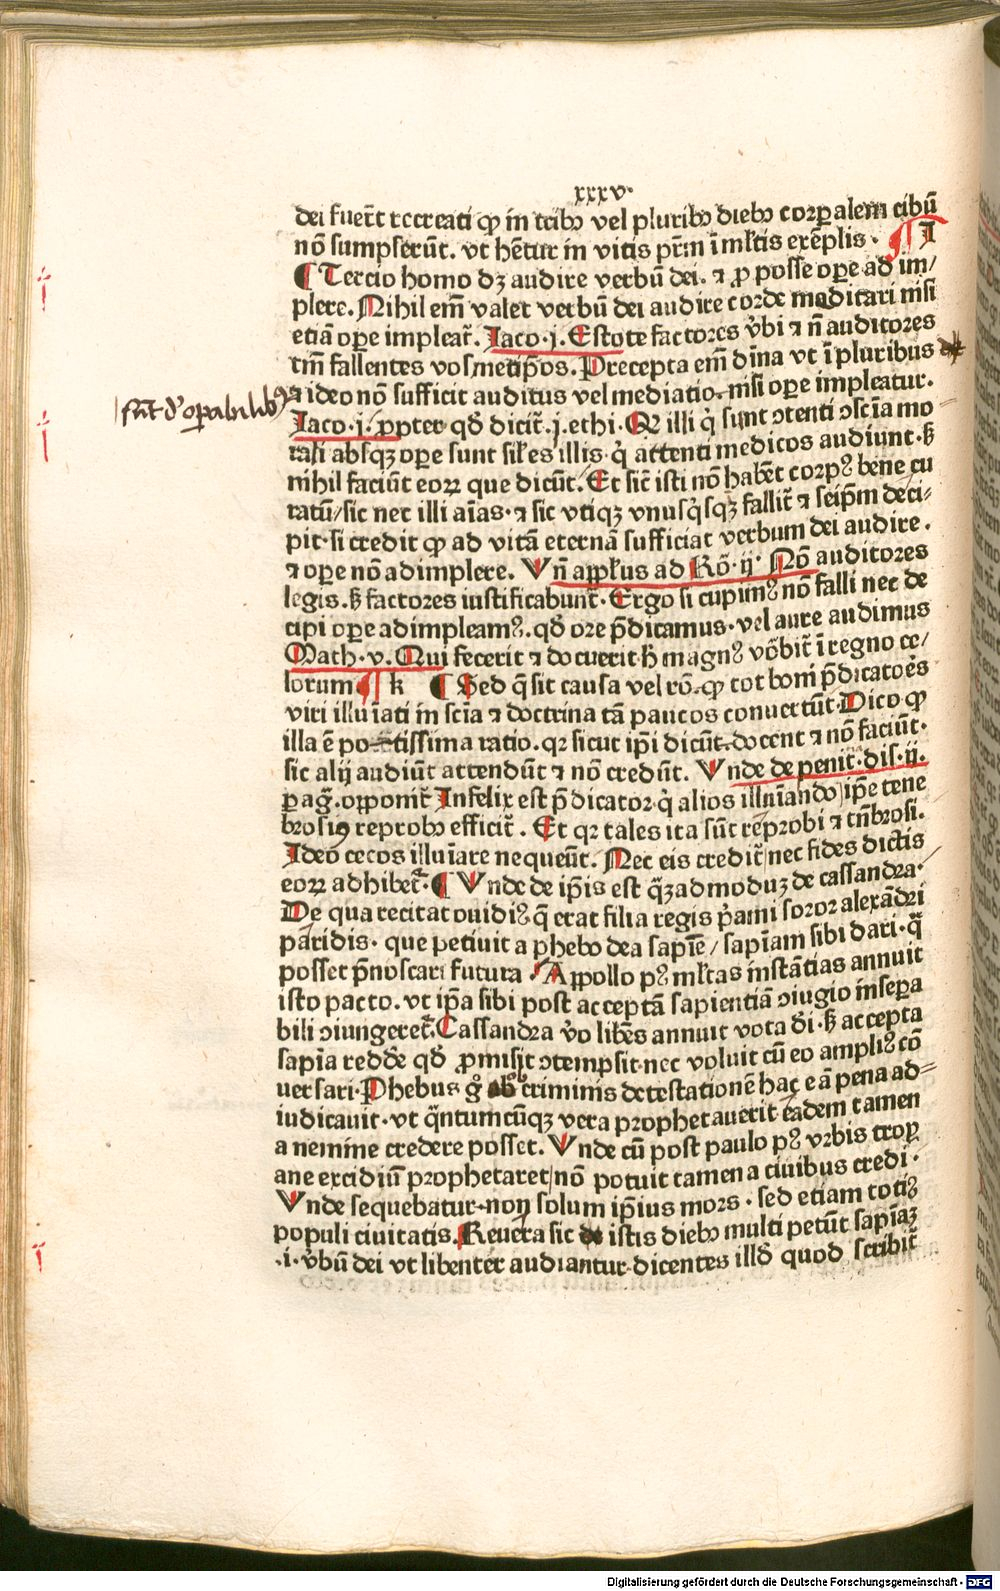 xxxv.
dei fuer̄t recreati ꝙ in trib⁹ vel plurib⁹ dieb⁹ corꝑalem cibū
nō sumpserūt. vt hēt̄ur in vitis pr̄m ī ml̄tis exēplis. ¶ I
¶ Tercio homo dꝫ audire verbū dei. ⁊ ꝓ posse oꝑe ad im/
plere. Nihil em̄ valet verbū dei audire corde meditari nisi
etiā oꝑe impleat̄. Iaco. j. Estote factores v̄bi ⁊ n̄ auditores
tm̄ fallentes vosmetip̄os. Precepta em̄ diīna vt ī pluribus
⁊ ideo nō sufficit auditus vel mediatio. nisi oꝑe impleatur.
sūt d' oꝑabilib⁹
Iaco. j. ꝓpter qd̄ dicit̄. j. ethi. Ꝙ illi q̇ sunt ↄtenti ↄsciā mo
rali absqꝫ oꝑe sunt sil̄es illis. q̇ attenti medicos audiunt. ꝫ
nihil faciūt eoꝝ que dicūt. Et sic̄ isti nō habēt corp⁹ bene cu
ratū/ sic nec illi aīas. ⁊ sic vtiqꝫ vnusq̇sqꝫ fallit̄ ⁊ seip̄m deci-
pit. si credit ꝙ ad vitā eternā sufficiat verbum dei audire.
⁊ oꝑe nō adimplere. Vn̄ apl̄us ad Rō. ij. Nō auditores
legis. ꝫ factores iustificabunt̄. Ergo si cupim⁹ nō falli nec de
cipi oꝑe adimpleam⁹. qd̄ ore p̄dicamus. vel aure audimus
Math. v. Qui fecerit ⁊ docuerit h̄ magn⁹ vo̅bit̄ ī regno ce/
lorum ¶ k ¶ Sed q̄ sit causa vel rō. ꝙ tot boni p̄dicatoēs
viri illuīati in sciā ⁊ doctrina tā paucos conuertūt. Dico ꝙ
illa ē potissima ratio. qꝛ sicut ip̄i dicūt. docent ⁊ nō faciūt.
sic alij audiūt attendūt ⁊ nō credūt. Vnde de penit̄. dis. ij.
ꝑag̈. opponit̄ Infelix est p̄dicator. q̇ alios illuīando ip̄e tene
brosi⁹ reprob⁹ efficit̄. Et qꝛ tales ita sūt reprobi ⁊ tn̄brosi.
Ideo cecos illuīare nequeūt. Nec eis credit̄ nec fides dictis
eoꝝ adhibet̄. ¶ Vnde de ip̄is est q̄ꝫadmoduꝫ de cassandra.
De qua recitat ouidi⁹ q̄ erat filia regis p̄ami soror alexādri
paridis. que petiuit a phebo dea sapiē/ sapiam sibi dari. q̄
posset p̄noscari futura. Appollo p⁹ ml̄tas instātias annuit
isto pacto. vt ip̄a sibi post acceptā sapientiā ↄiugio inseꝑa
bili ↄiungeret̄. Cassandra v̄o libēs annuit vota d̄i. ꝫ accepta
sapiā redd̄e qd̄ ꝓmisit ↄtempsit. nec voluit cū eo ampli⁹ cō
uersari. Phebus g̊ ob criminis detestationē hac eā pena ad=
iudicauit. vt q̄ntumcūqꝫ vera prophetauerit eadem tamen
a nemine credere posset. Vnde cū post paulo p⁹ vrbis troꝑ
ane excidiū prophetaret/ nō potuit tamen a ciuibus credi.
Vnde sequebatur. non solum ip̄ius mors. sed etiam toti⁹
populi ciuitatis. Reuera sic de istis dieb⁹ multi petūt sapiaꝫ
.i. v̄bū dei vt libenter audiantur. dicentes illd̄ quod scribit̄
Digitalisierung gefördert durch die Deutsche Forschungsgemeinschaft - DFG